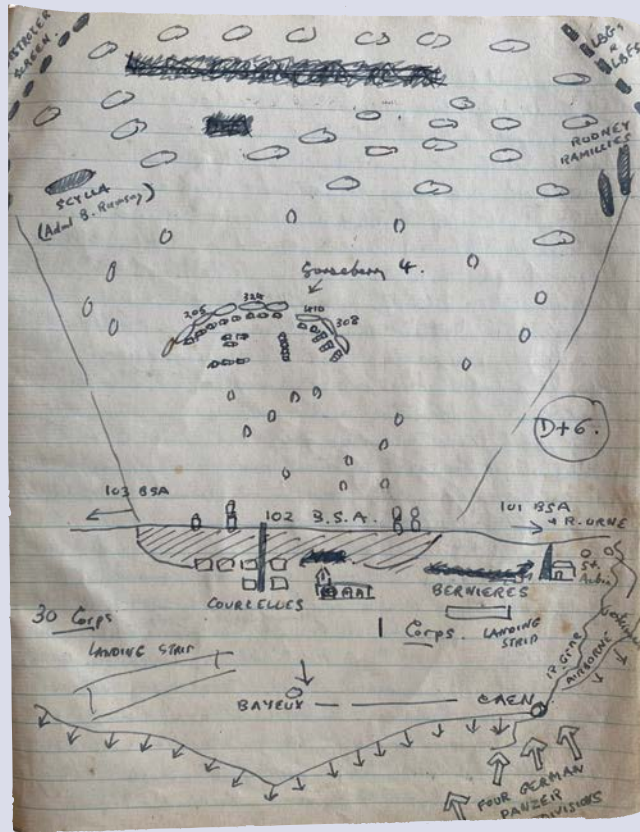 DESTROYER
SCREEN.
LBG's
&
LBF's
RODNEY
RAMILLIES
SCYLLA
(Adml B. Ramsay)
Gooseberry 4.
205
324
410
308
D+6.
103 BSA
102 B.S.A.
101 BSA
R. ORNE
St.
Aubin
COURCELLES
BERNIERES
30 Corps
1 Corps.
LANDING
STRIP
LANDING STRIP
R. Orne
AIRBORNE
BAYEUX
CAEN
FOUR GERMAN
PANZER
DIVISIONS